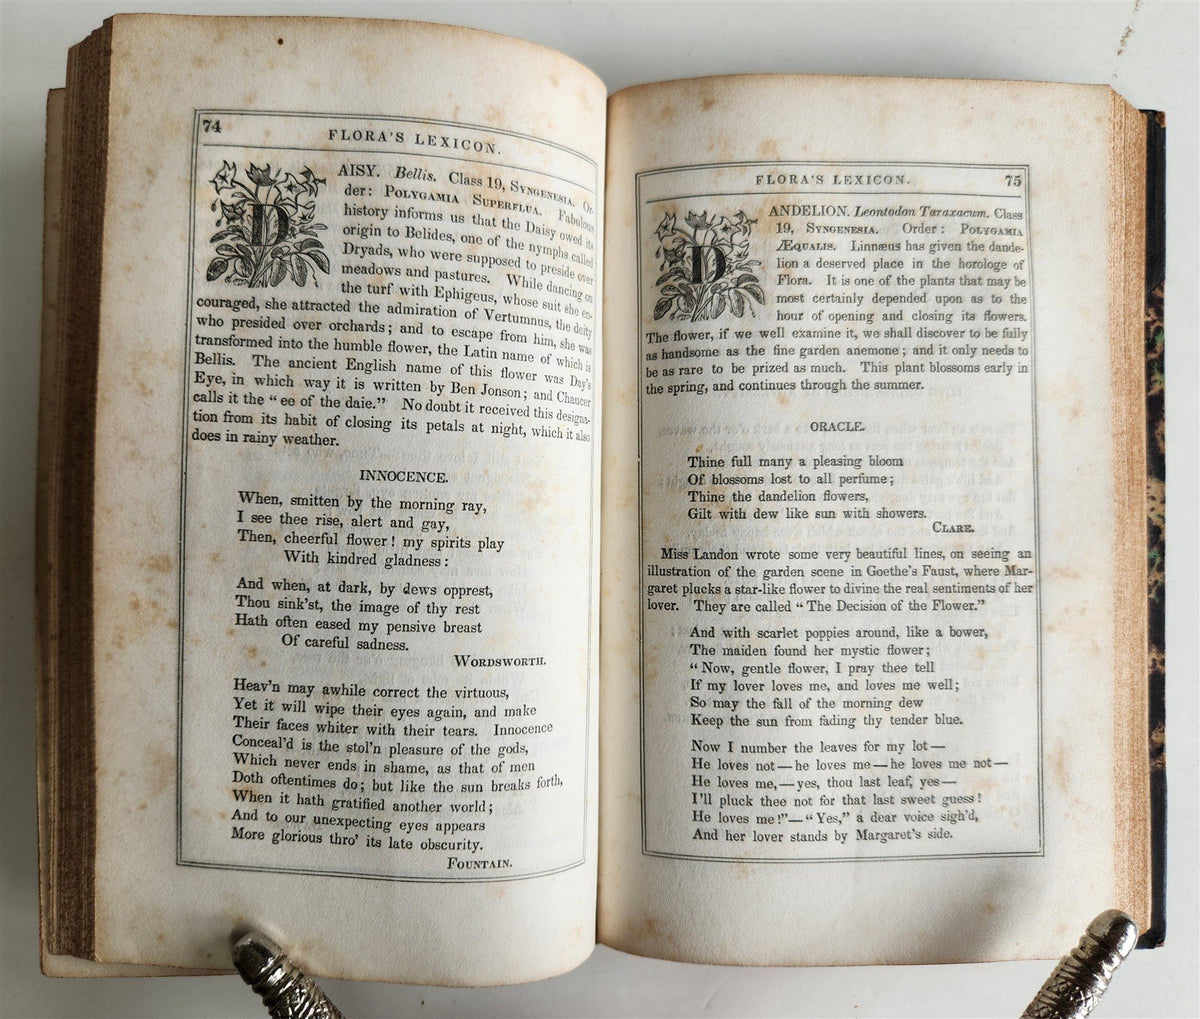 74
FLORA'S LEXICON.
DAISY. Bellis. Class 19, SYNGENESIA. Or-
der: POLYGAMIA SUPERFLUA. Fabulous
history informs us that the Daisy owed its
origin to Belides, one of the nymphs called
Dryads, who were supposed to preside over
meadows and pastures. While dancing on
the turf with Ephigeus, whose suit she en-
couraged, she attracted the admiration of Vertumnus, the deity
who presided over orchards; and to escape from him, she was
transformed into the humble flower, the Latin name of which is
Bellis. The ancient English name of this flower was Day's
Eye, in which way it is written by Ben Jonson; and Chaucer
calls it the "ee of the daie." No doubt it received this designa-
tion from its habit of closing its petals at night, which it also
does in rainy weather.
INNOCENCE.
When, smitten by the morning ray,
I see thee rise, alert and gay,
Then, cheerful flower! my spirits play
With kindred gladness:
And when, at dark, by dews opprest,
Thou sink'st, the image of thy rest
Hath often eased my pensive breast
Of careful sadness.
WORDSWORTH.
Heav'n may awhile correct the virtuous,
Yet it will wipe their eyes again, and make
Their faces whiter with their tears. Innocence
Conceal'd is the stol'n pleasure of the gods,
Which never ends in shame, as that of men
Doth oftentimes do; but like the sun breaks forth,
When it hath gratified another world;
And to our unexpecting eyes appears
More glorious thro' its late obscurity.
FOUNTAIN.
FLORA'S LEXICON.
75
DANDELION. Leontodon Taraxacum. Class
19, SYNGENESIA. Order: POLYGAMIA
ÆQUALIS. Linnæus has given the dande-
lion a deserved place in the horologe of
Flora. It is one of the plants that may be
most certainly depended upon as to the
hour of opening and closing its flowers.
The flower, if we well examine it, we shall discover to be fully
as handsome as the fine garden anemone; and it only needs to
be as rare to be prized as much. This plant blossoms early in
the spring, and continues through the summer.
ORACLE.
Thine full many a pleasing bloom
Of blossoms lost to all perfume;
Thine the dandelion flowers,
Gilt with dew like sun with showers.
CLARE.
Miss Landon wrote some very beautiful lines, on seeing an
illustration of the garden scene in Goethe's Faust, where Mar-
garet plucks a star-like flower to divine the real sentiments of her
lover. They are called "The Decision of the Flower."
And with scarlet poppies around, like a bower,
The maiden found her mystic flower;
"Now, gentle flower, I pray thee tell
If my lover loves me, and loves me well;
So may the fall of the morning dew
Keep the sun from fading thy tender blue.
Now I number the leaves for my lot—
He loves not—he loves me—he loves me not—
He loves me,—yes, thou last leaf, yes—
I'll pluck thee not for that last sweet guess!
He loves me!"—"Yes," a dear voice sigh'd,
And her lover stands by Margaret's side.